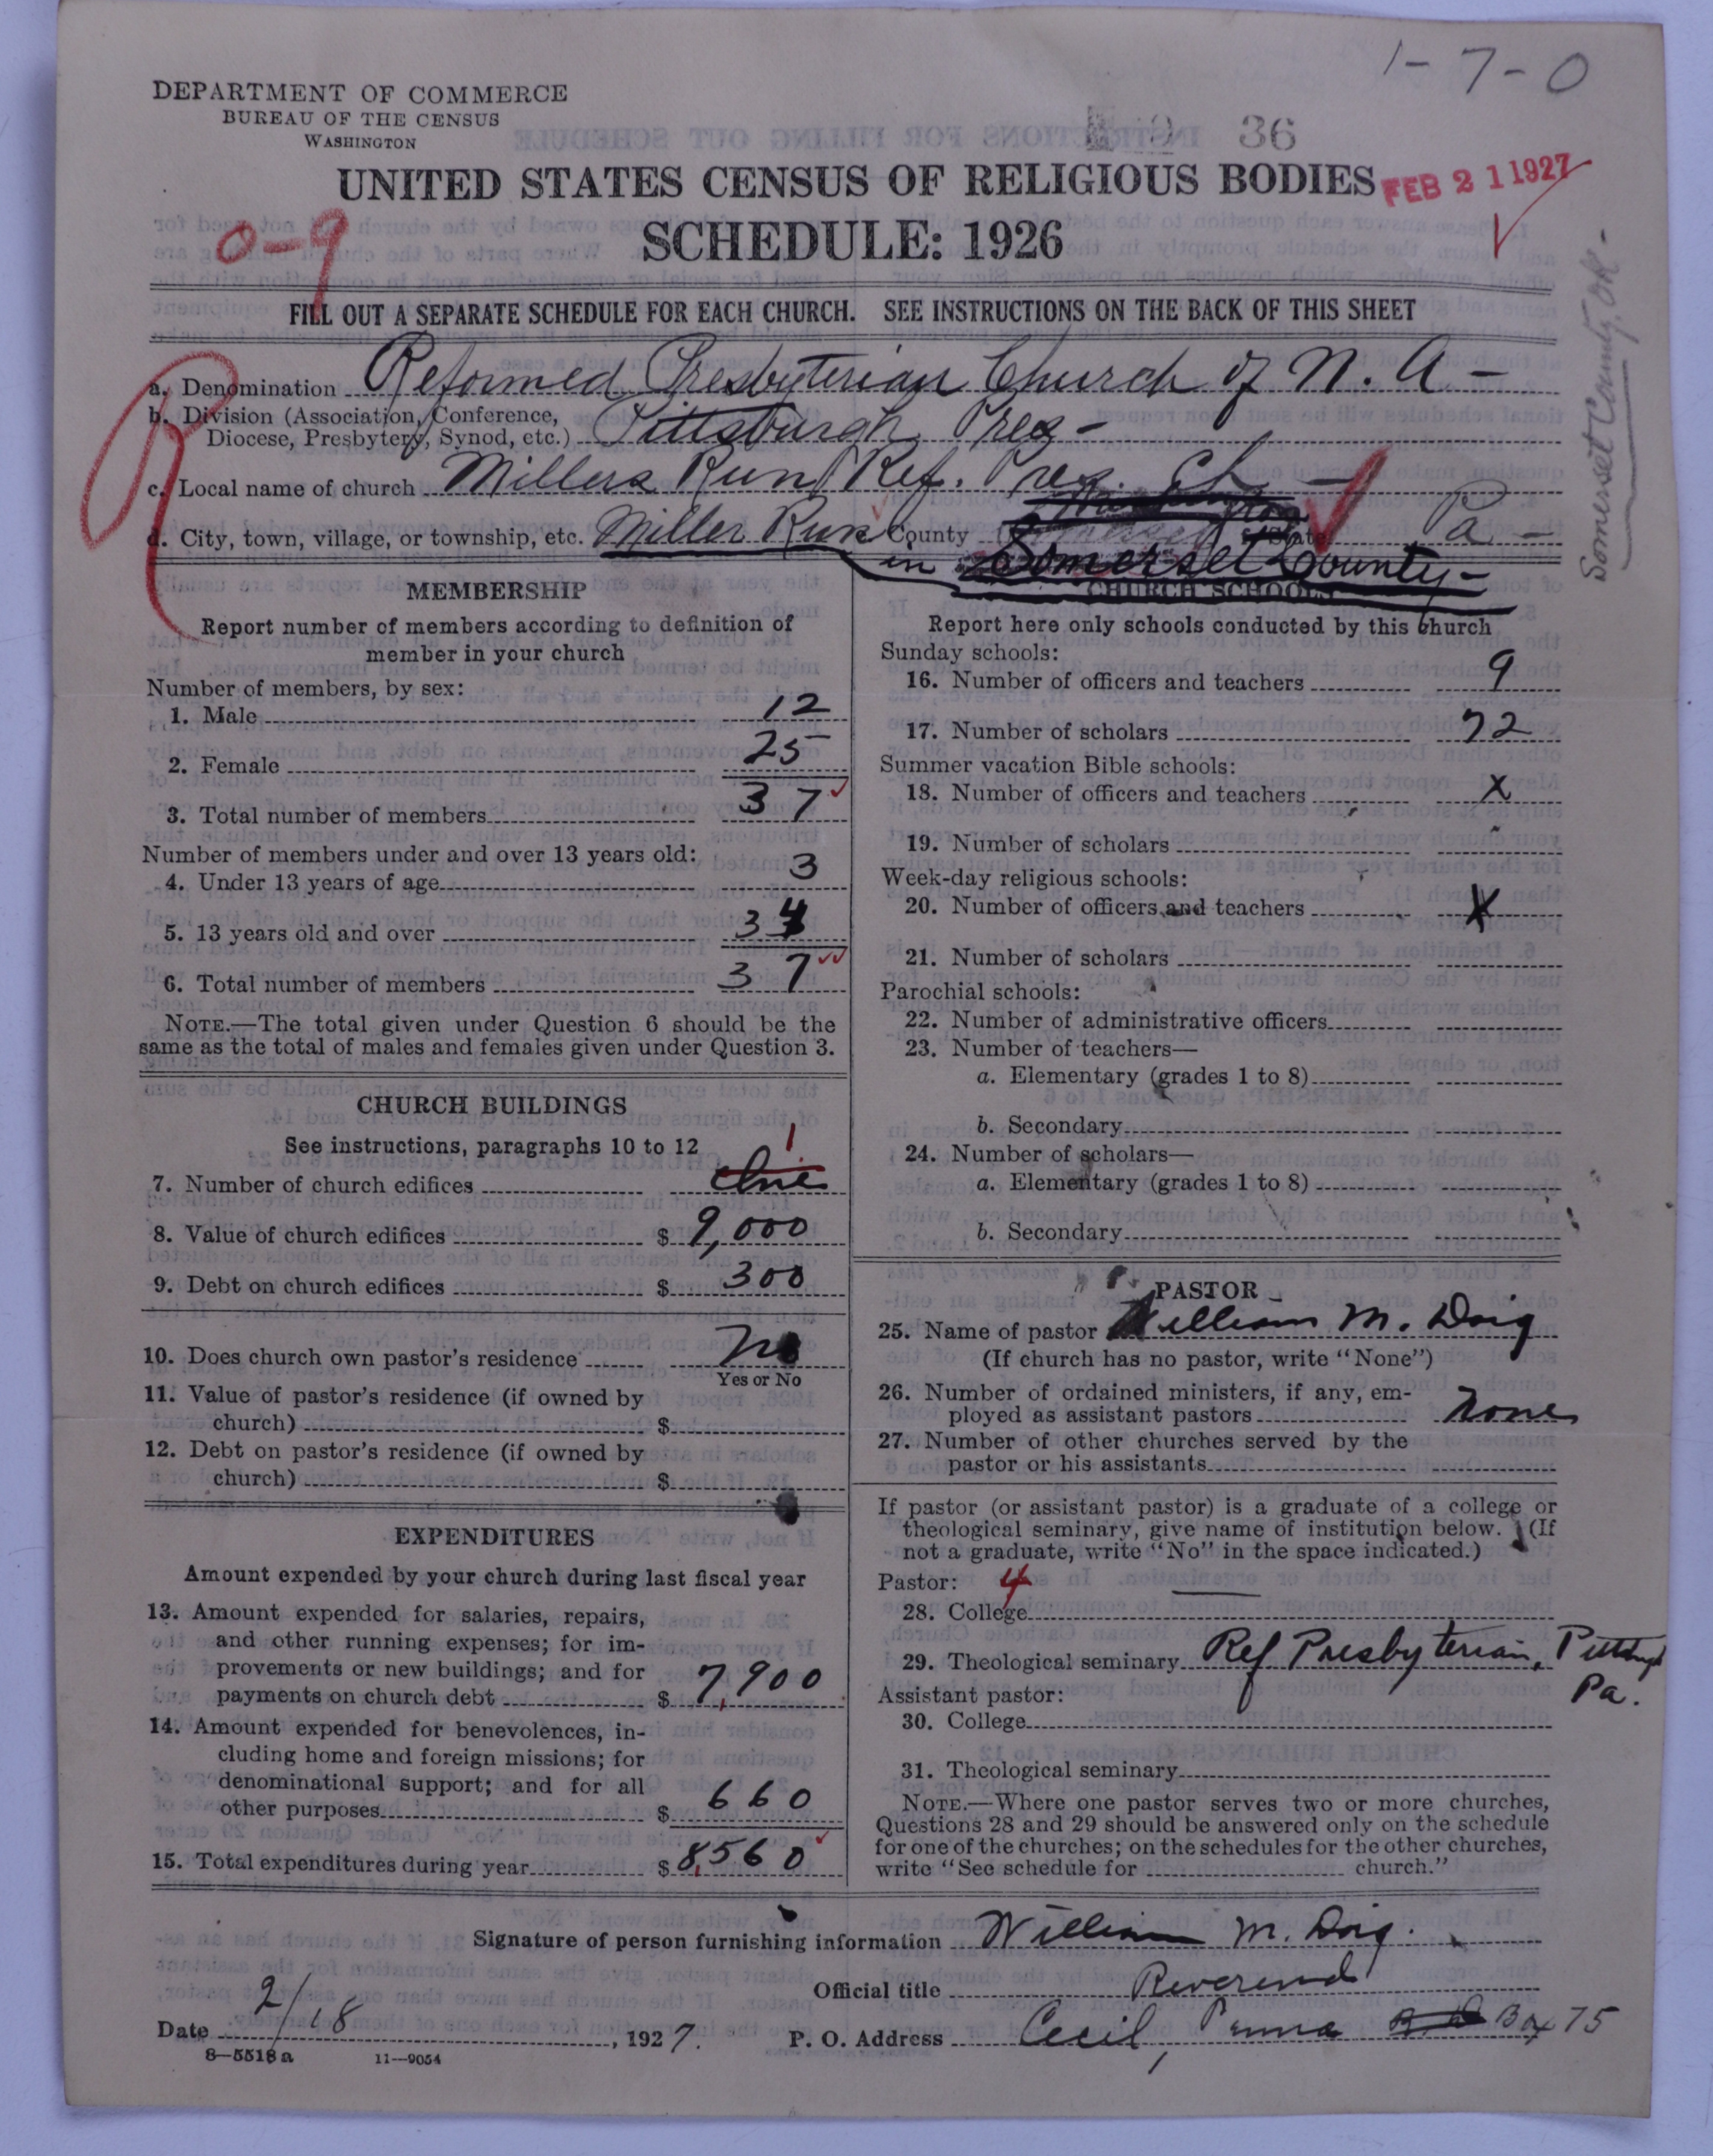 1-7-0
DEPARTMENT OF COMMERCE
BUREAU OF THE CENSUS
WASHINGTON
36
UNITED STATES CENSUS OF RELIGIOUS BODIES
FEB 21 1927
SCHEDULE: 1926
0-9
FILL OUT A SEPARATE SCHEDULE FOR EACH CHURCH. SEE INSTRUCTIONS ON THE BACK OF THIS SHEET
Somerset County, OK -
R
a. Denomination Reformed Presbyterian Church of N. A -
b. Division (Association, Conference,
Diocese, Presbytery, Synod, etc.) Pittsburgh Pres -
c. Local name of church Millers Run Ref. Pres. Ch -
d. City, town, village, or township, etc. Miller Run County Washington State Pa -
in Somerset County -
MEMBERSHIP
Report number of members according to definition of
member in your church
Number of members, by sex:
1. Male 12
2. Female 25
3. Total number of members 37
Number of members under and over 13 years old:
4. Under 13 years of age 3
5. 13 years old and over 34
6. Total number of members 37
NOTE.—The total given under Question 6 should be the
same as the total of males and females given under Question 3.
CHURCH BUILDINGS
See instructions, paragraphs 10 to 12
1
7. Number of church edifices One
8. Value of church edifices $ 9,000
9. Debt on church edifices $ 300
10. Does church own pastor's residence No
Yes or No
11. Value of pastor's residence (if owned by
church) $
12. Debt on pastor's residence (if owned by
church) $
EXPENDITURES
Amount expended by your church during last fiscal year
13. Amount expended for salaries, repairs,
and other running expenses; for im-
provements or new buildings; and for
payments on church debt $ 7,900
14. Amount expended for benevolences, in-
cluding home and foreign missions; for
denominational support; and for all
other purposes $ 660
15. Total expenditures during year $ 8,560
CHURCH SCHOOLS
Report here only schools conducted by this church
Sunday schools:
16. Number of officers and teachers 9
17. Number of scholars 72
Summer vacation Bible schools:
18. Number of officers and teachers X
19. Number of scholars
Week-day religious schools:
20. Number of officers and teachers X
21. Number of scholars
Parochial schools:
22. Number of administrative officers
23. Number of teachers—
a. Elementary (grades 1 to 8)
b. Secondary
24. Number of scholars—
a. Elementary (grades 1 to 8)
b. Secondary
PASTOR
25. Name of pastor William M. Doig
(If church has no pastor, write "None")
26. Number of ordained ministers, if any, em-
ployed as assistant pastors none
27. Number of other churches served by the
pastor or his assistants
If pastor (or assistant pastor) is a graduate of a college or
theological seminary, give name of institution below. (If
not a graduate, write "No" in the space indicated.)
Pastor: 4
28. College —
29. Theological seminary Ref Presbyterian, Pittsburgh
Pa.
Assistant pastor:
30. College
31. Theological seminary
NOTE.—Where one pastor serves two or more churches,
Questions 28 and 29 should be answered only on the schedule
for one of the churches; on the schedules for the other churches,
write "See schedule for church."
Signature of person furnishing information William M. Doig.
Official title Reverend
Date 2/18, 1927. P. O. Address Cecil, Penna Box 75
8—5518a 11—9054